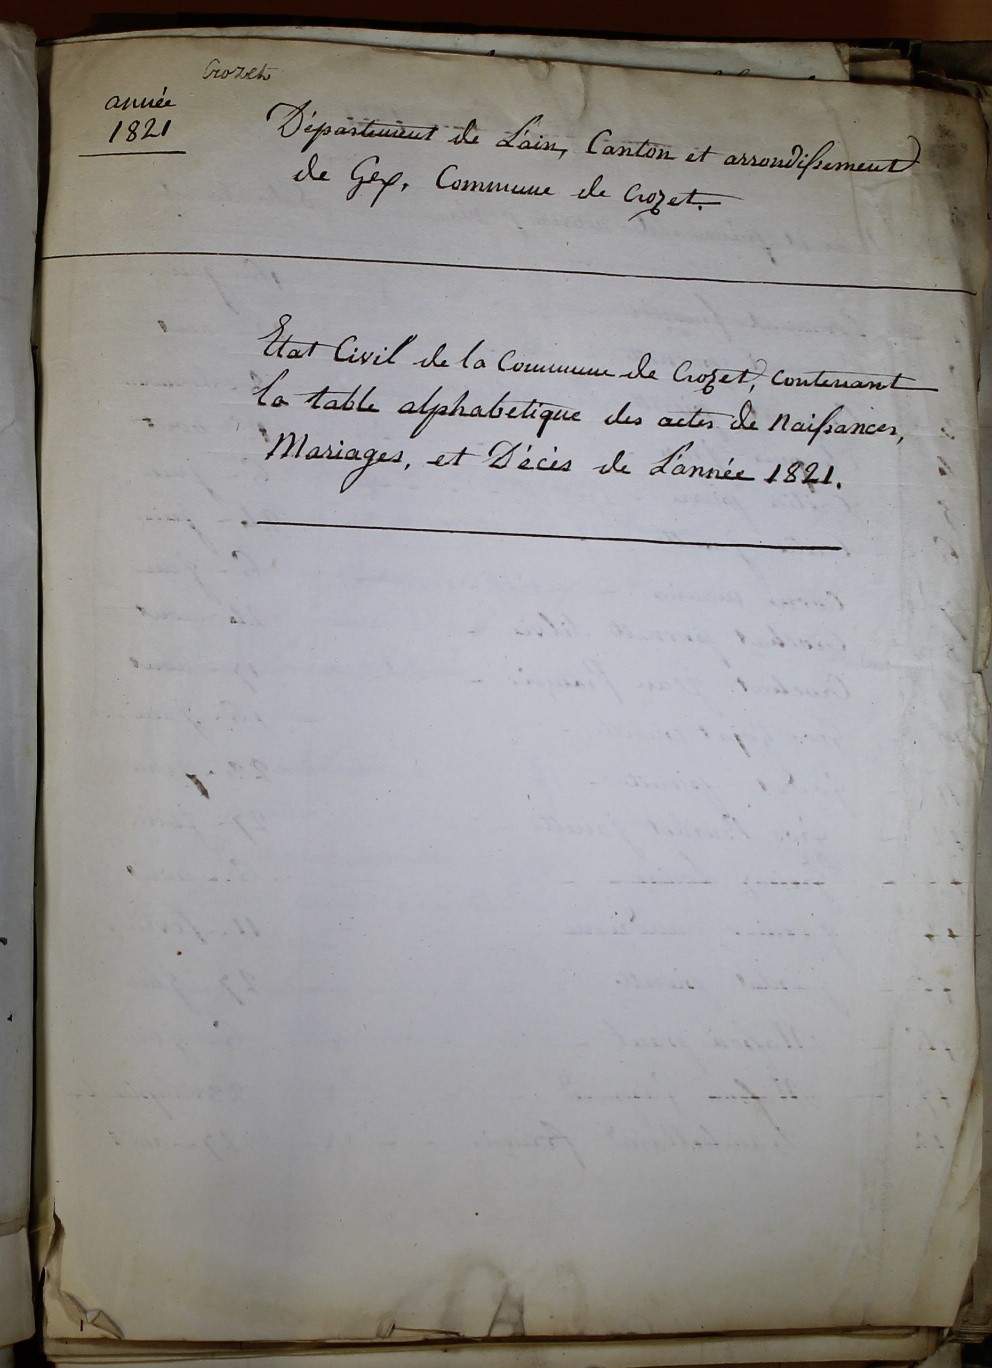 Crozet
année
1821
Département de L'ain, Canton et arrondissement
de Gex, Commune de Crozet.
Etat Civil de la Commune de Crozet, contenant
la table alphabetique des actes de Naissances,
Mariages, et Décès de L'année 1821.